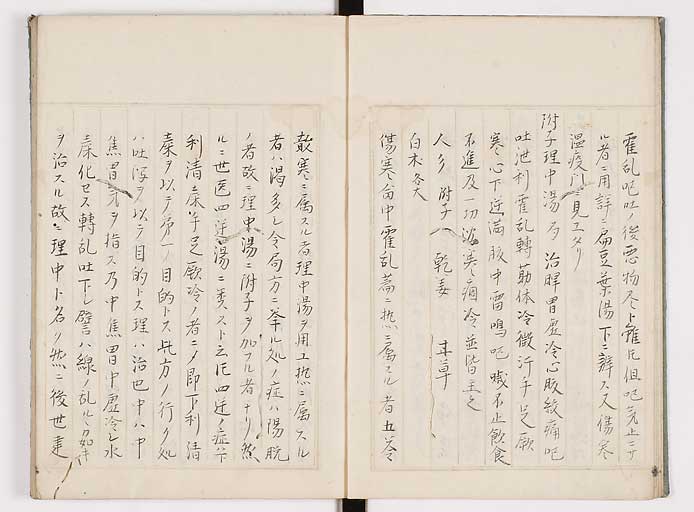 霍乱吐ノ後悪物尽ト雖モ但吃気止ニサ
ル者ニ用詳ニ扁豆葉湯下ニ辨ス又傷寒
温疫門ニ見エタリ
附子理中湯局 治脾胃虚冷心腹絞痛吃
吐泄利霍乱轉筋体冷微汗手足厥
寒心下逆満腹中雷鳴吃噦不止飲食
不進及一切沈寒痼冷並皆主之
人参 附子 八 乾姜 甘草
白朮各大
傷寒論中霍乱篇ニ熱ニ属スル者五苓
散寒ニ属スル者理中湯ヲ用エ熱ニ属スル
者ハ渇多シ今局方ニ挙ル処ノ症ハ陽脱
ノ者故ニ理中湯ニ附子ヲ加フル者ナリ然
ルニ世医四逆湯ニ類スト云氏四逆ノ症ハ下
利清穀手足厥冷ノ者ニメ即下利清
穀ヲ以テ第一ノ目的トス此方ノ行ク処
ハ吐瀉ヲ以テ目的トス理ハ治也中ハ中
焦胃気ヲ指ス乃中焦胃中虚冷シ水
穀化セス轉乱吐下シ譬ハ線ノ乱ルヽカ如キ
ヲ治スル故ニ理中ト名ク然ニ後世建